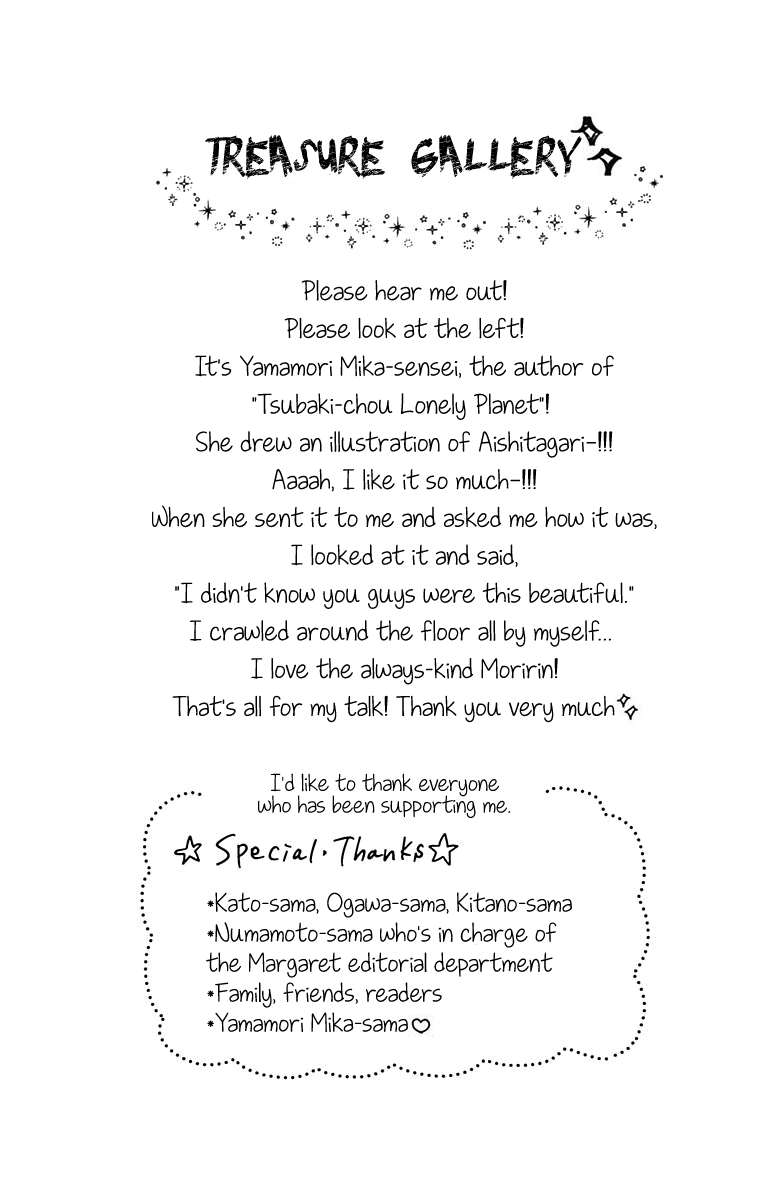 TREASURE GALLERY
Please hear me out!
Please look at the left!
It's Yamamori Mika-sensei, the author of
"Tsubaki-chou Lonely Planet"!
She drew an illustration of Aishitagari-!!!
Aaaah, I like it so much-!!!
When she sent it to me and asked me how it was,
I looked at it and said,
"I didn't know you guys were this beautiful."
I crawled around the floor all by myself...
I love the always-kind Moririn!
That's all for my talk! Thank you very much
I'd like to thank everyone
who has been supporting me.
☆ Special・Thanks☆
*Kato-sama, Ogawa-sama, Kitano-sama
*Numamoto-sama who's in charge of
the Margaret editorial department
*Family, friends, readers
*Yamamori Mika-sama♡